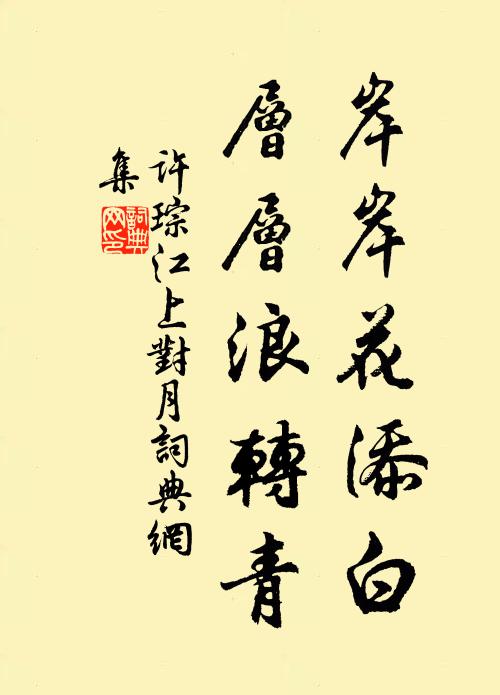 岸岸花添白
層層浪轉青
許琮江上對月詞典網
集
詞典
网印